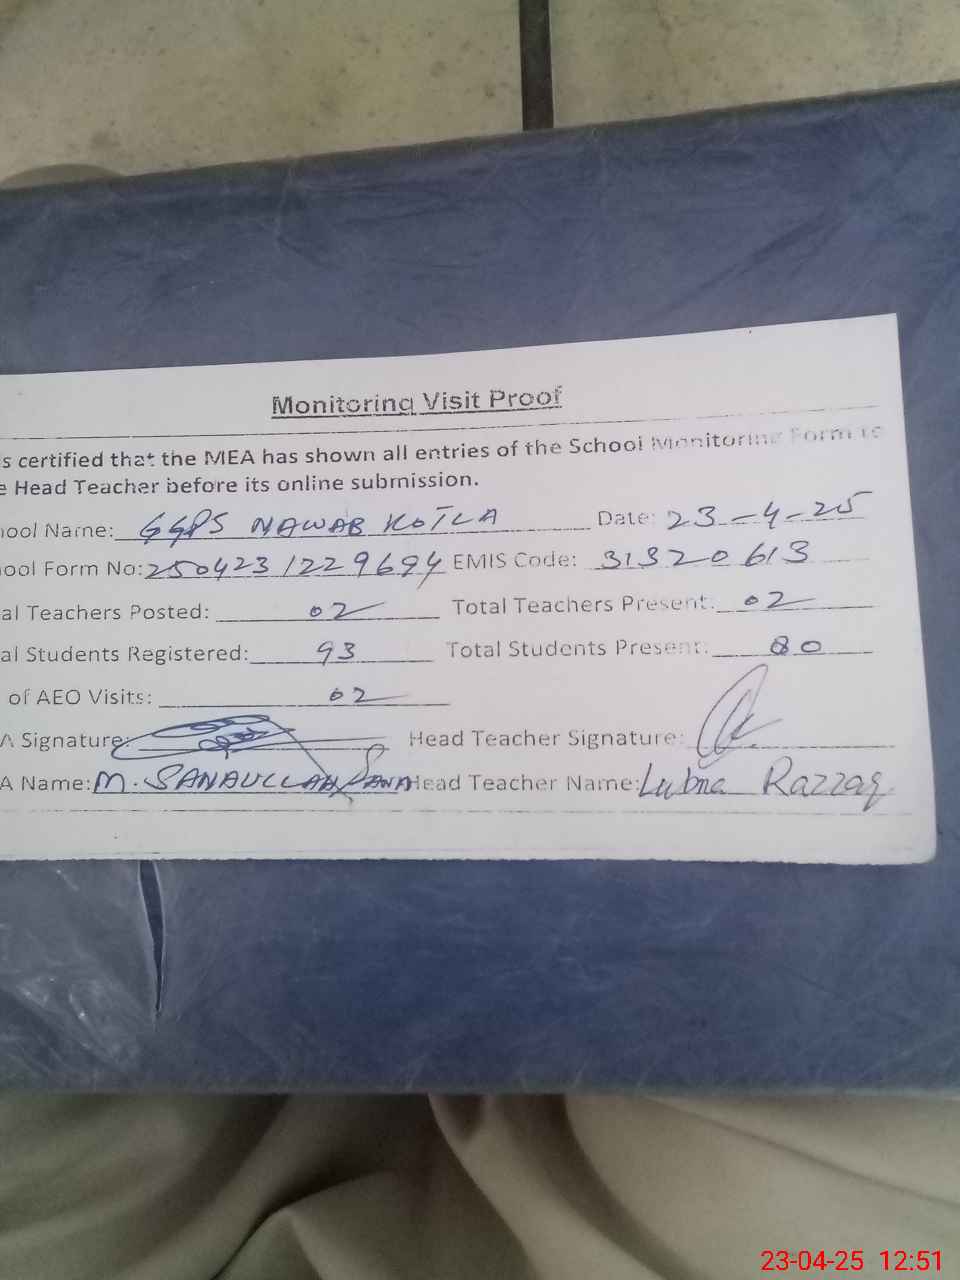 Monitoring Visit Proof
s certified that the MEA has shown all entries of the School Monitoring Form to
e Head Teacher before its online submission.
ool Name: GGPS NAWAB KOTLA Date: 23-4-25
ool Form No: 250423122969​4 EMIS Code: 31320613
al Teachers Posted: 02 Total Teachers Present: 02
al Students Registered: 93 Total Students Present: 80
of AEO Visits: 02
A Signature: Head Teacher Signature:
A Name: M. SANAULLAH RANA Head Teacher Name: Lubna Razzaq
23-04-25 12:51